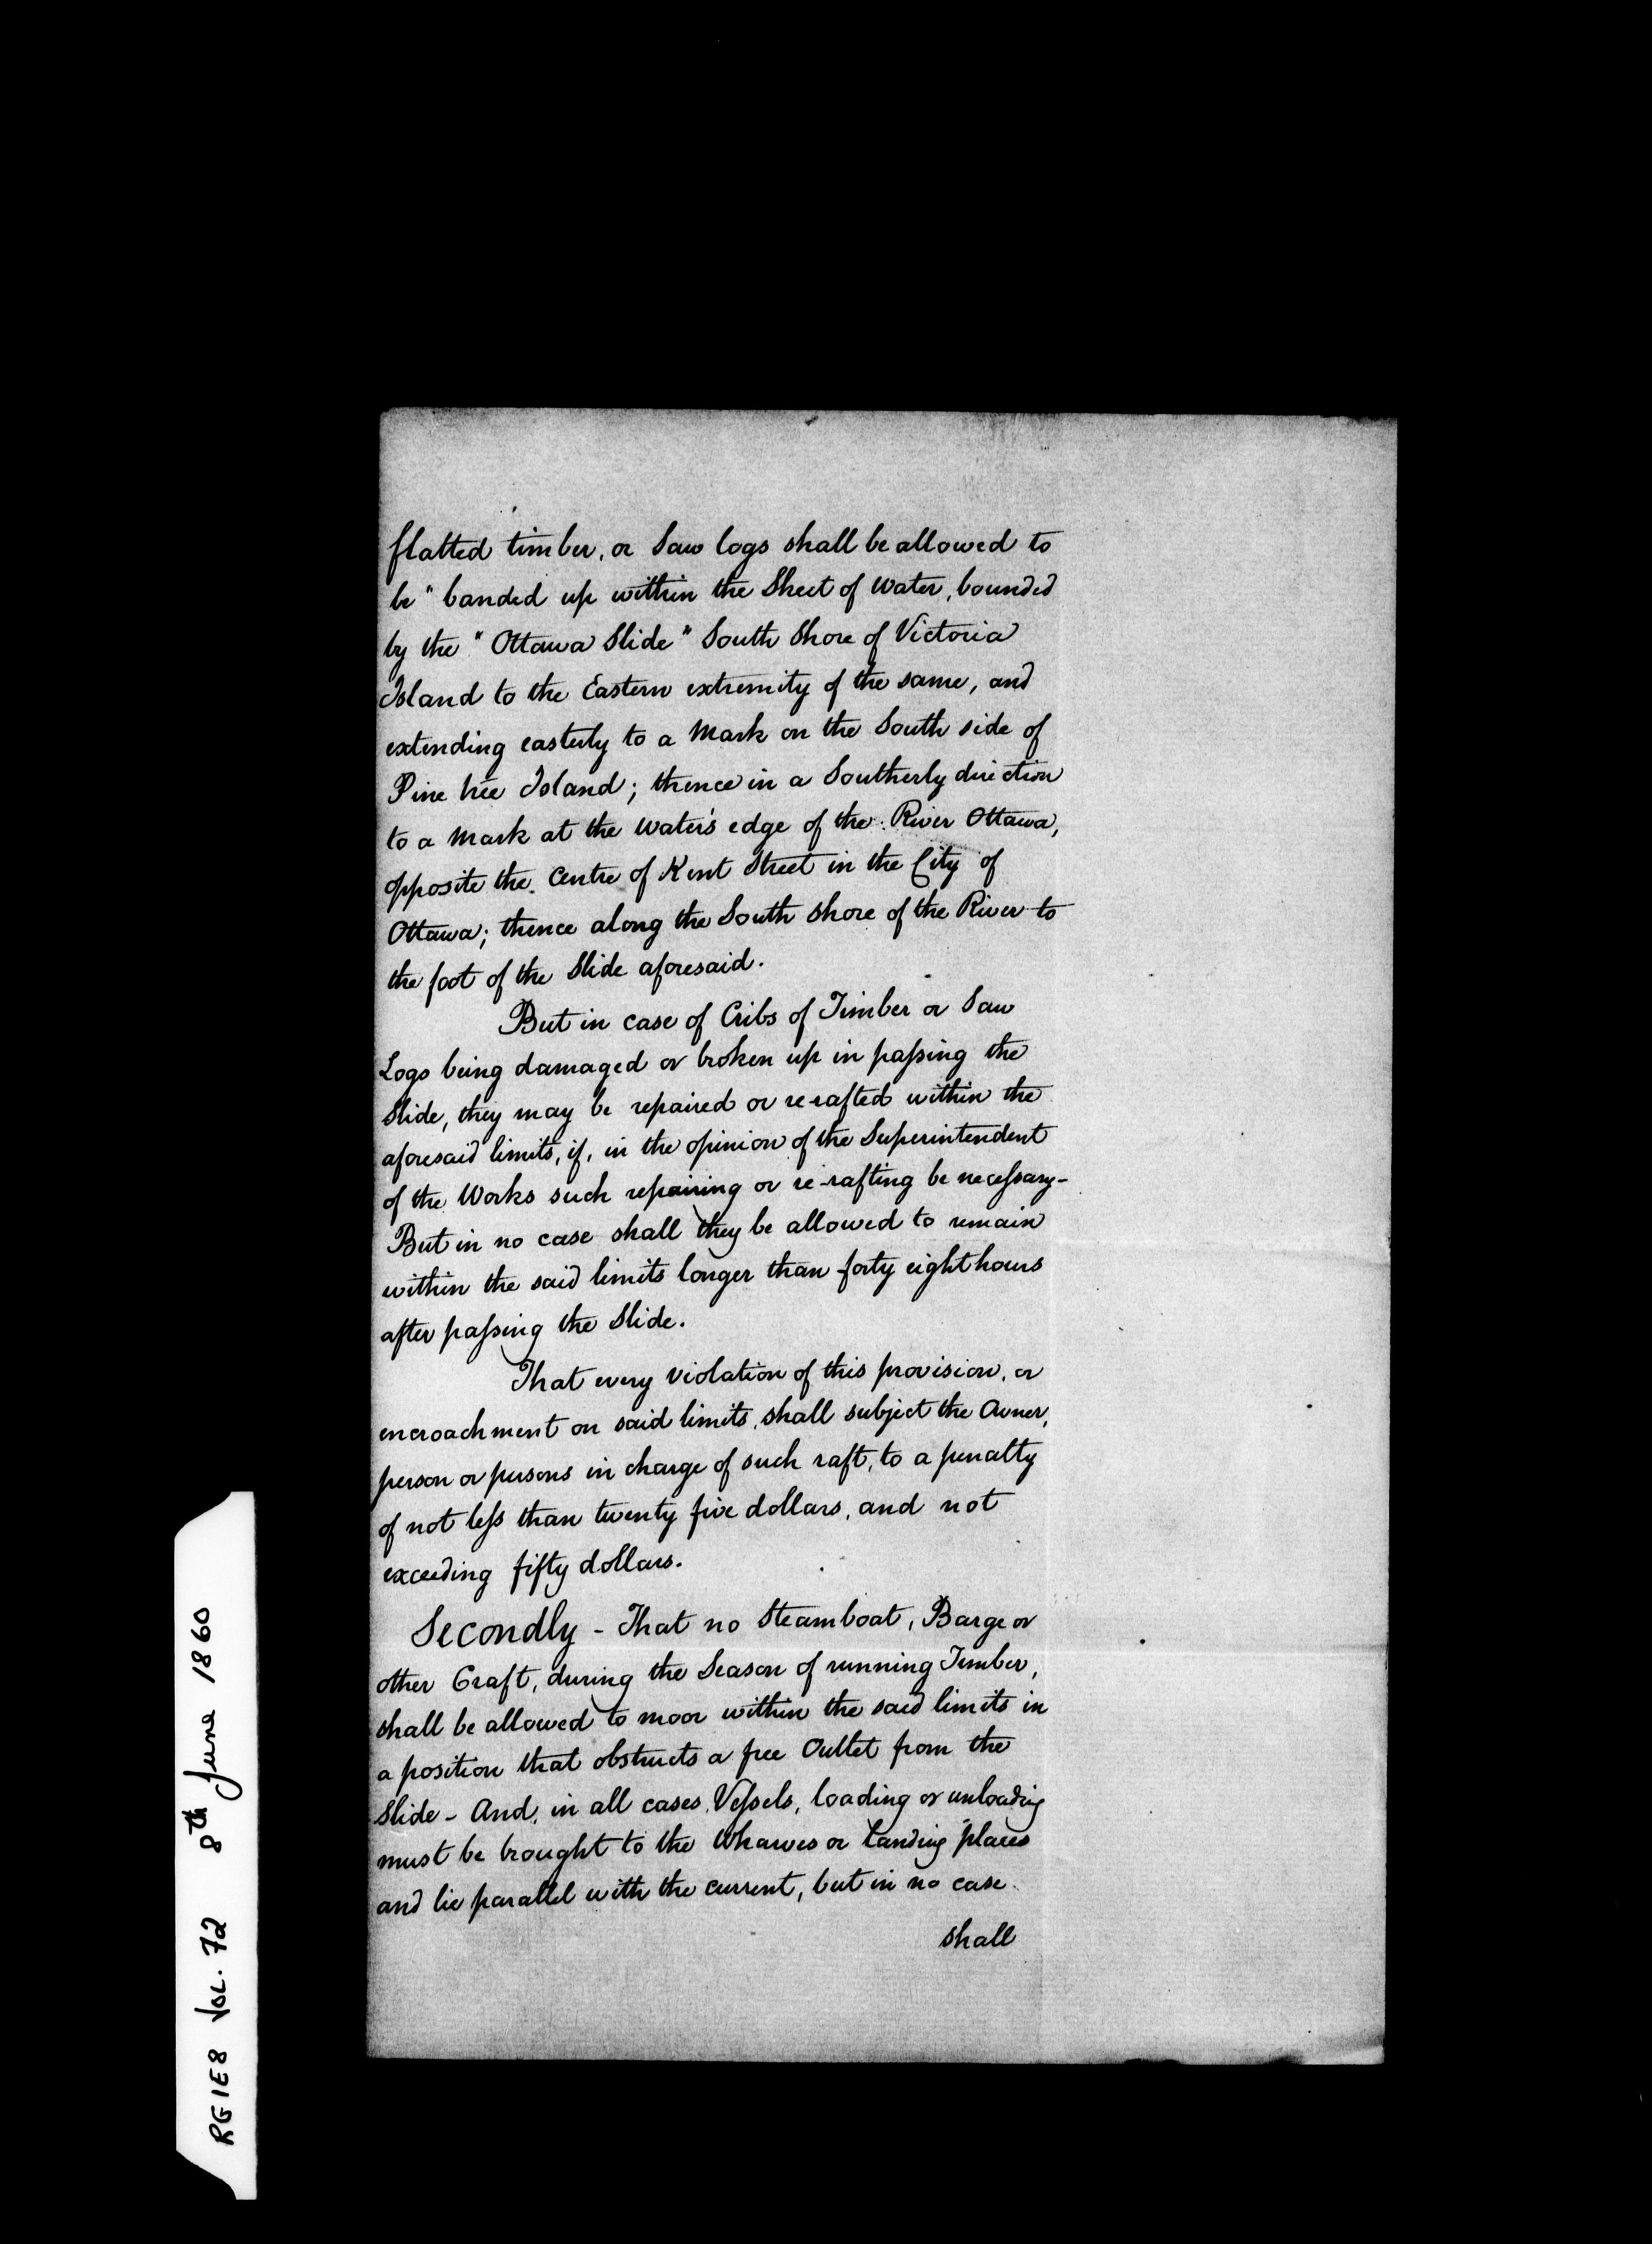 flatted timber, or Saw logs shall be allowed to
be "banded up within the Sheet of Water, bounded
by the "Ottawa Slide" South Shore of Victoria
Island to the Eastern extremity of the same, and
extending easterly to a Mark on the South side of
Pine tree Island; thence in a Southerly direction
to a Mark at the Water's edge of the River Ottawa,
opposite the Centre of Kent Street in the City of
Ottawa; thence along the South Shore of the River to
the foot of the Slide aforesaid.
But in case of Cribs of Timber or Saw
Logs being damaged or broken up in passing the
Slide, they may be repaired or re-rafted within the
aforesaid limits, if, in the opinion of the Superintendent
of the Works such repairing or re-rafting be necessary-
But in no case shall they be allowed to remain
within the said limits longer than forty eight hours
after passing the Slide.
That every violation of this provision, or
encroachment on said limits, shall subject the Owner,
person or persons in charge of such raft, to a penalty
of not less than twenty five dollars, and not
exceeding fifty dollars.
Secondly - That no Steamboat, Barge or
other Craft, during the Season of running Timber,
shall be allowed to moor within the said limits in
a position that obstructs a free Outlet from the
Slide - And, in all cases, Vessels, loading or unloading
must be brought to the Wharves or landing places
and lie parallel with the current, but in no case
shall
RG 1 E8 VOL. 72 8th June 1860